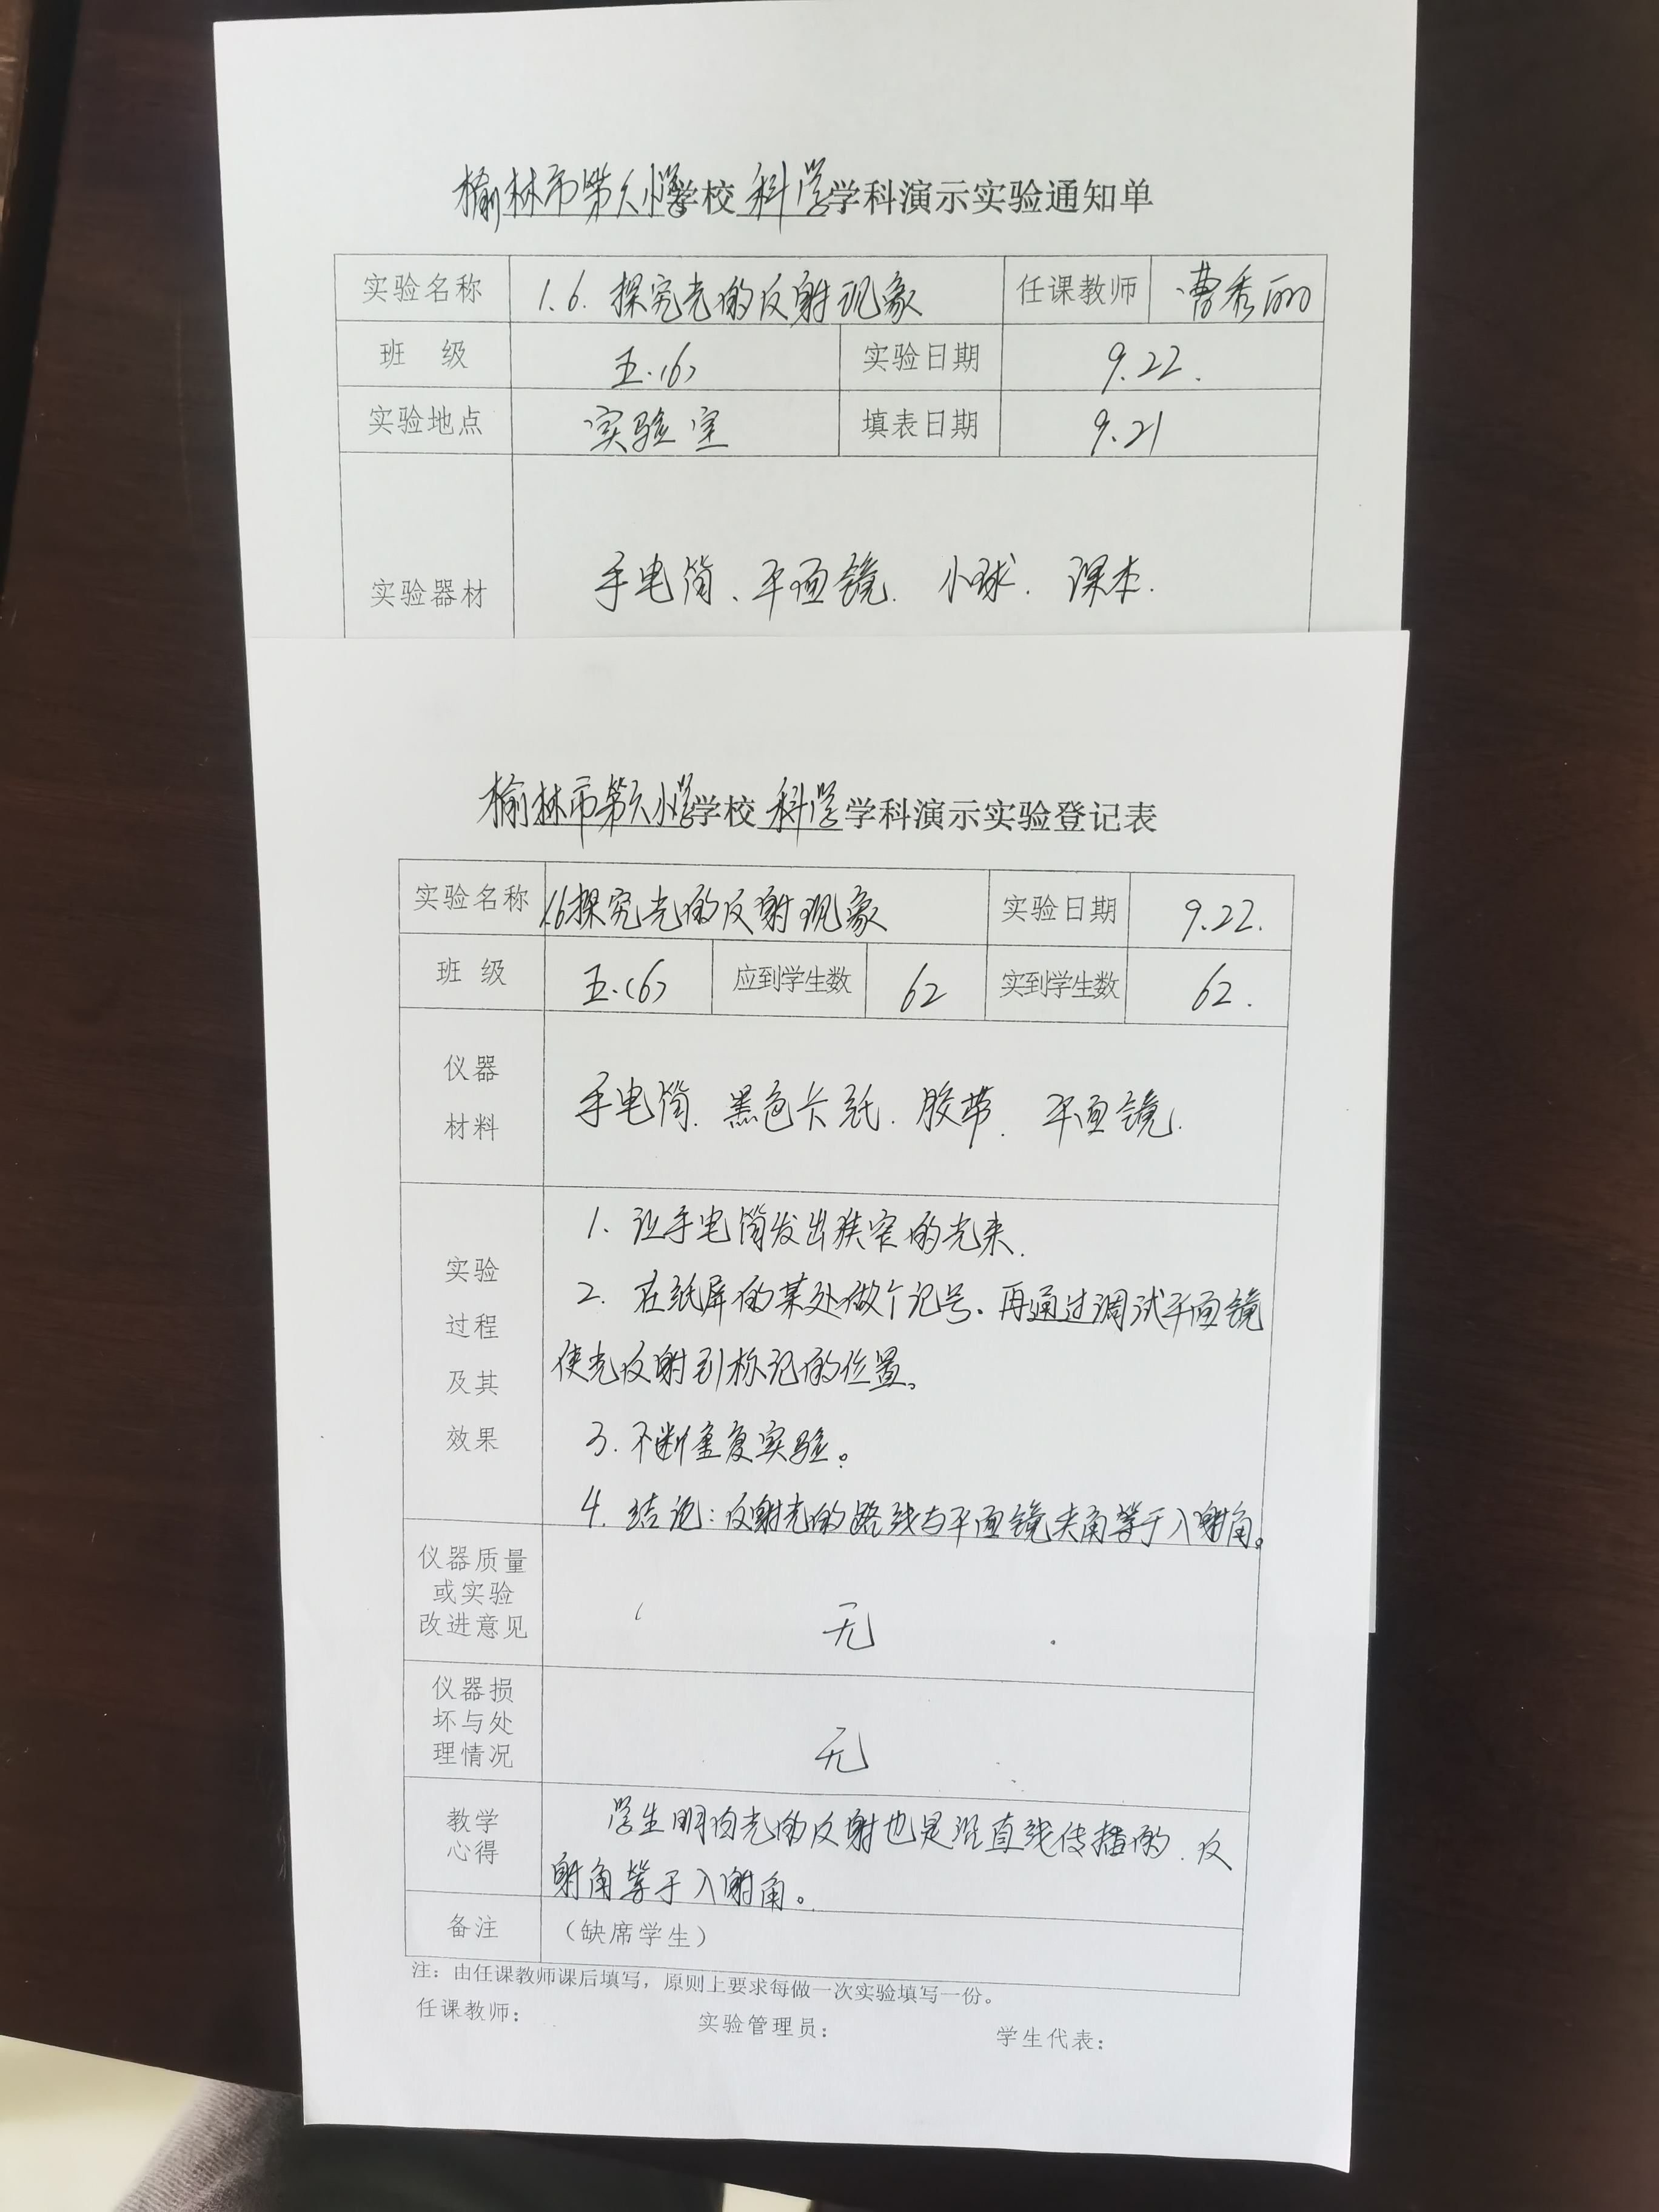 榆林市第六小学学校 科学学科演示实验通知单
实验名称 1.6. 探究光的反射现象 任课教师 曹秀丽
班 级 五.(6) 实验日期 9.22.
实验地点 实验室 填表日期 9.21
实验器材 手电筒、平面镜. 小球. 课本.
榆林市第六小学学校 科学学科演示实验登记表
实验名称 1.6探究光的反射现象 实验日期 9.22.
班 级 五.(6) 应到学生数 62 实到学生数 62.
仪器
材料
手电筒. 黑色卡纸. 胶带. 平面镜.
实验
过程
及其
效果
1. 让手电筒发出狭窄的光来.
2. 在纸屏的某处做个记号. 再通过调试平面镜
使光反射到标记的位置。
3. 不断重复实验。
4. 结论：反射光的路线与平面镜夹角等于入射角。
仪器质量
或实验
改进意见
无
仪器损
坏与处
理情况
无
教学
心得
学生明白光的反射也是沿直线传播的. 反
射角等于入射角。
备注 （缺席学生）
注：由任课教师课后填写，原则上要求每做一次实验填写一份。
任课教师： 实验管理员： 学生代表：